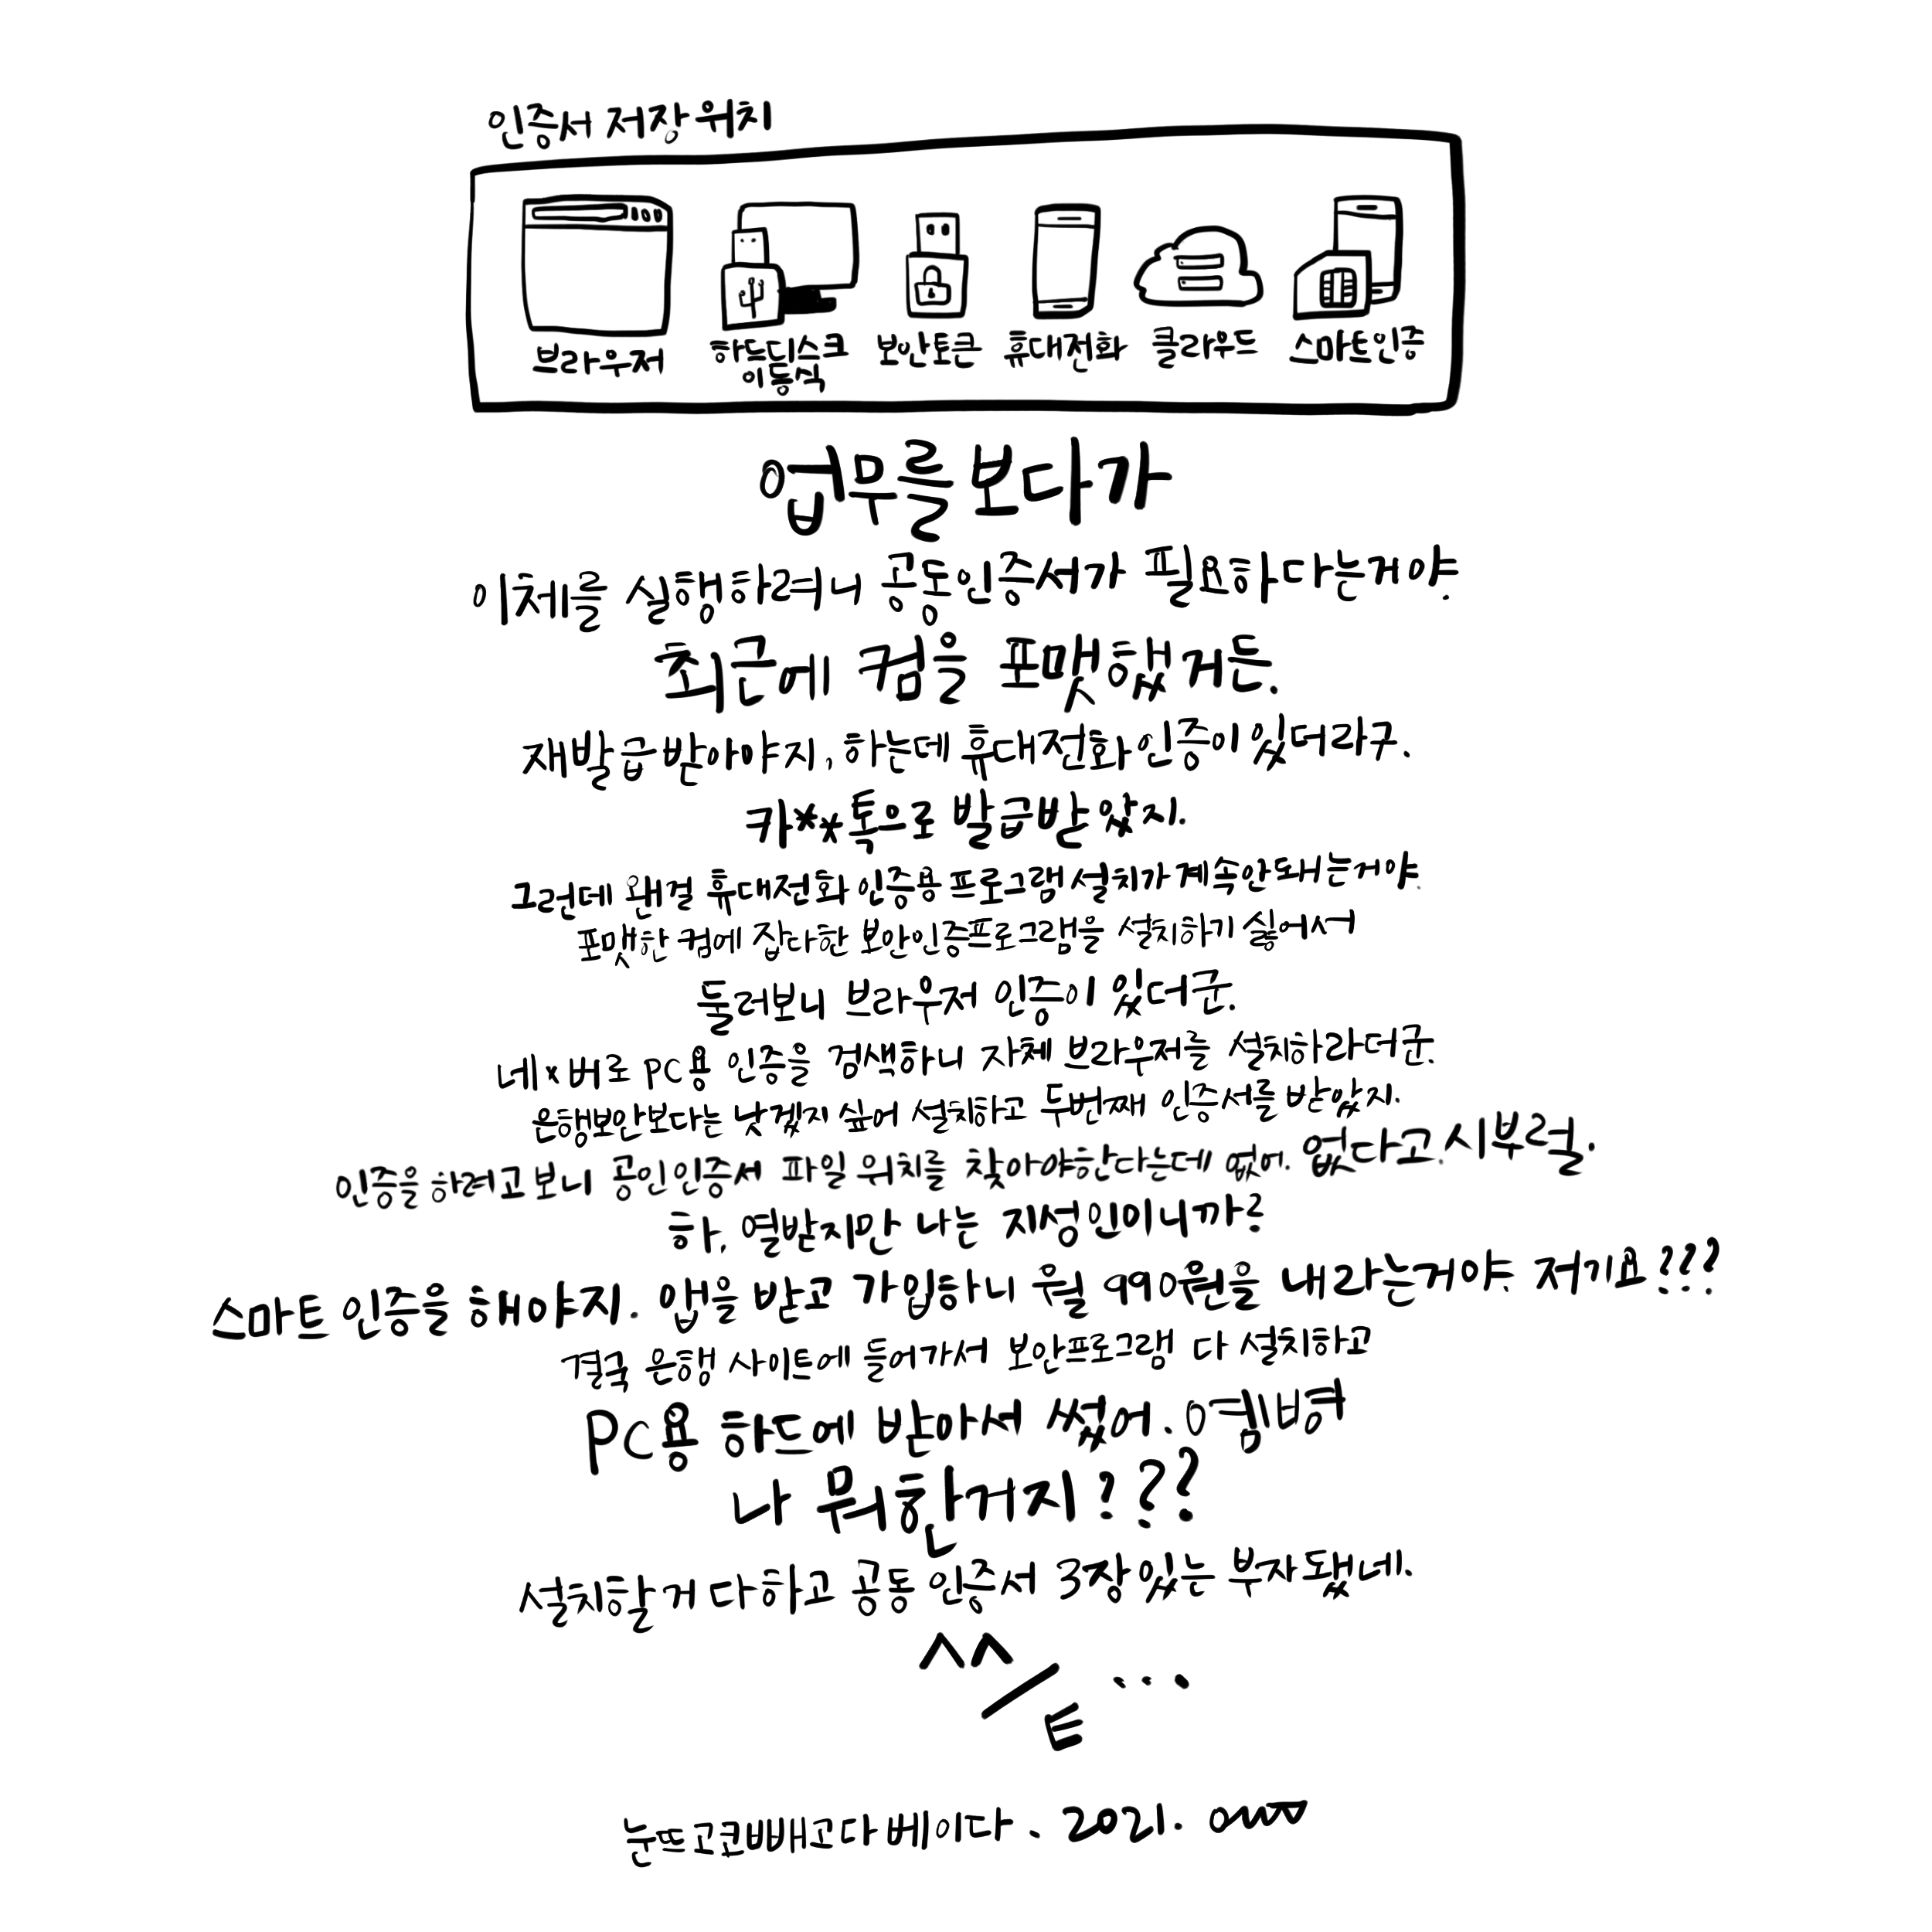 인증서 저장 위치
브라우저 하드디스크 보안토큰 휴대전화 클라우드 스마트인증
이동식
업무를보다가
이체를 실행하려니 공동인증서가 필요하다는거야.
최근에 컴을 포맷했거든.
재발급받아야지, 하는데 휴대전화인증이 있더라구.
카**톡으로 발급받았지.
그런데 왠걸 휴대전화 인증용 프로그램 설치가 계속안돼는거야.
포맷한 컴에 잡다한 보안인증프로그램을 설치하기 싫어서
둘러보니 브라우저 인증이 있더군.
네x버로 PC용 인증을 검색하니 자체 브라우저를 설치하라더군.
은행보안보다는 낫겠지 싶어 설치하고 두번째 인증서를 받았지.
인증을 하려고 보니 공인인증서 파일 위치를 찾아야한다는데 없어. 없다고. 시부럴.
하. 열받지만 나는 지성인이니까?
스마트 인증을 해야지. 앱을 받고 가입하니 월 990원을 내라는거야. 저기요???
결국 은행 사이트에 들어가서 보안프로그램 다 설치하고
PC용 하드에 받아서 썼어. 옘병
나 뭐한거지???
설치할거 다하고 공동 인증서 3장있는 부자됐네.
^^/E ...
눈뜨고코빼고다베이다. 2021.